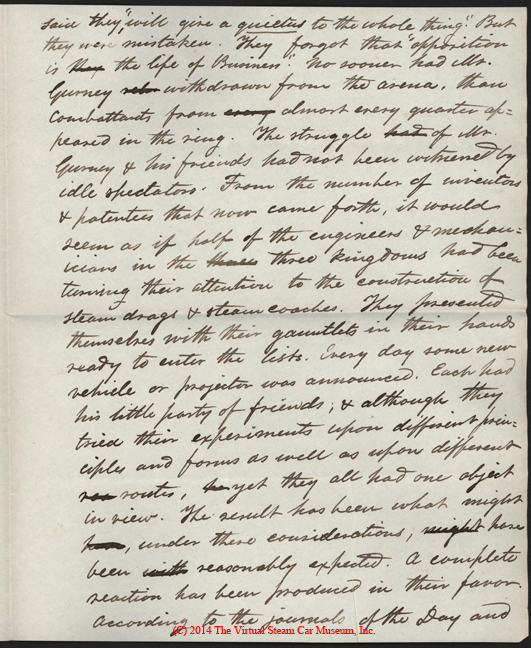 said they, "will give a quietus to the whole thing". But
they were mistaken. They forgot that "opposition
is they the life of Business". No sooner had Mr.
Gurney withdrawn from the arena, than
combattants from every almost every quarter ap-
peared in the ring. The struggle had of Mr.
Gurney & his friends had not been witnessed by
idle spectators. From the number of inventors
& patentees that now came forth, it would
seem as if half of the engineers & mechan=
icians in the three kingdoms had been
turning their attention to the construction of
steam drags & steam coaches. They presented
themselves with their gauntlets in their hands
ready to enter the lists. Every day some new
vehicle or projector was announced. Each had
his little party of friends; & although they
tried their experiments upon different prin-
ciples and forms as well as upon different
routes, yet they all had one object
in view. The result has been what might
have, under these considerations, might have
been with reasonably expected. A complete
reaction has been produced in their favor.
According to the journals of the Day and
(C) 2014 The Virtual Steam Car Museum, Inc.